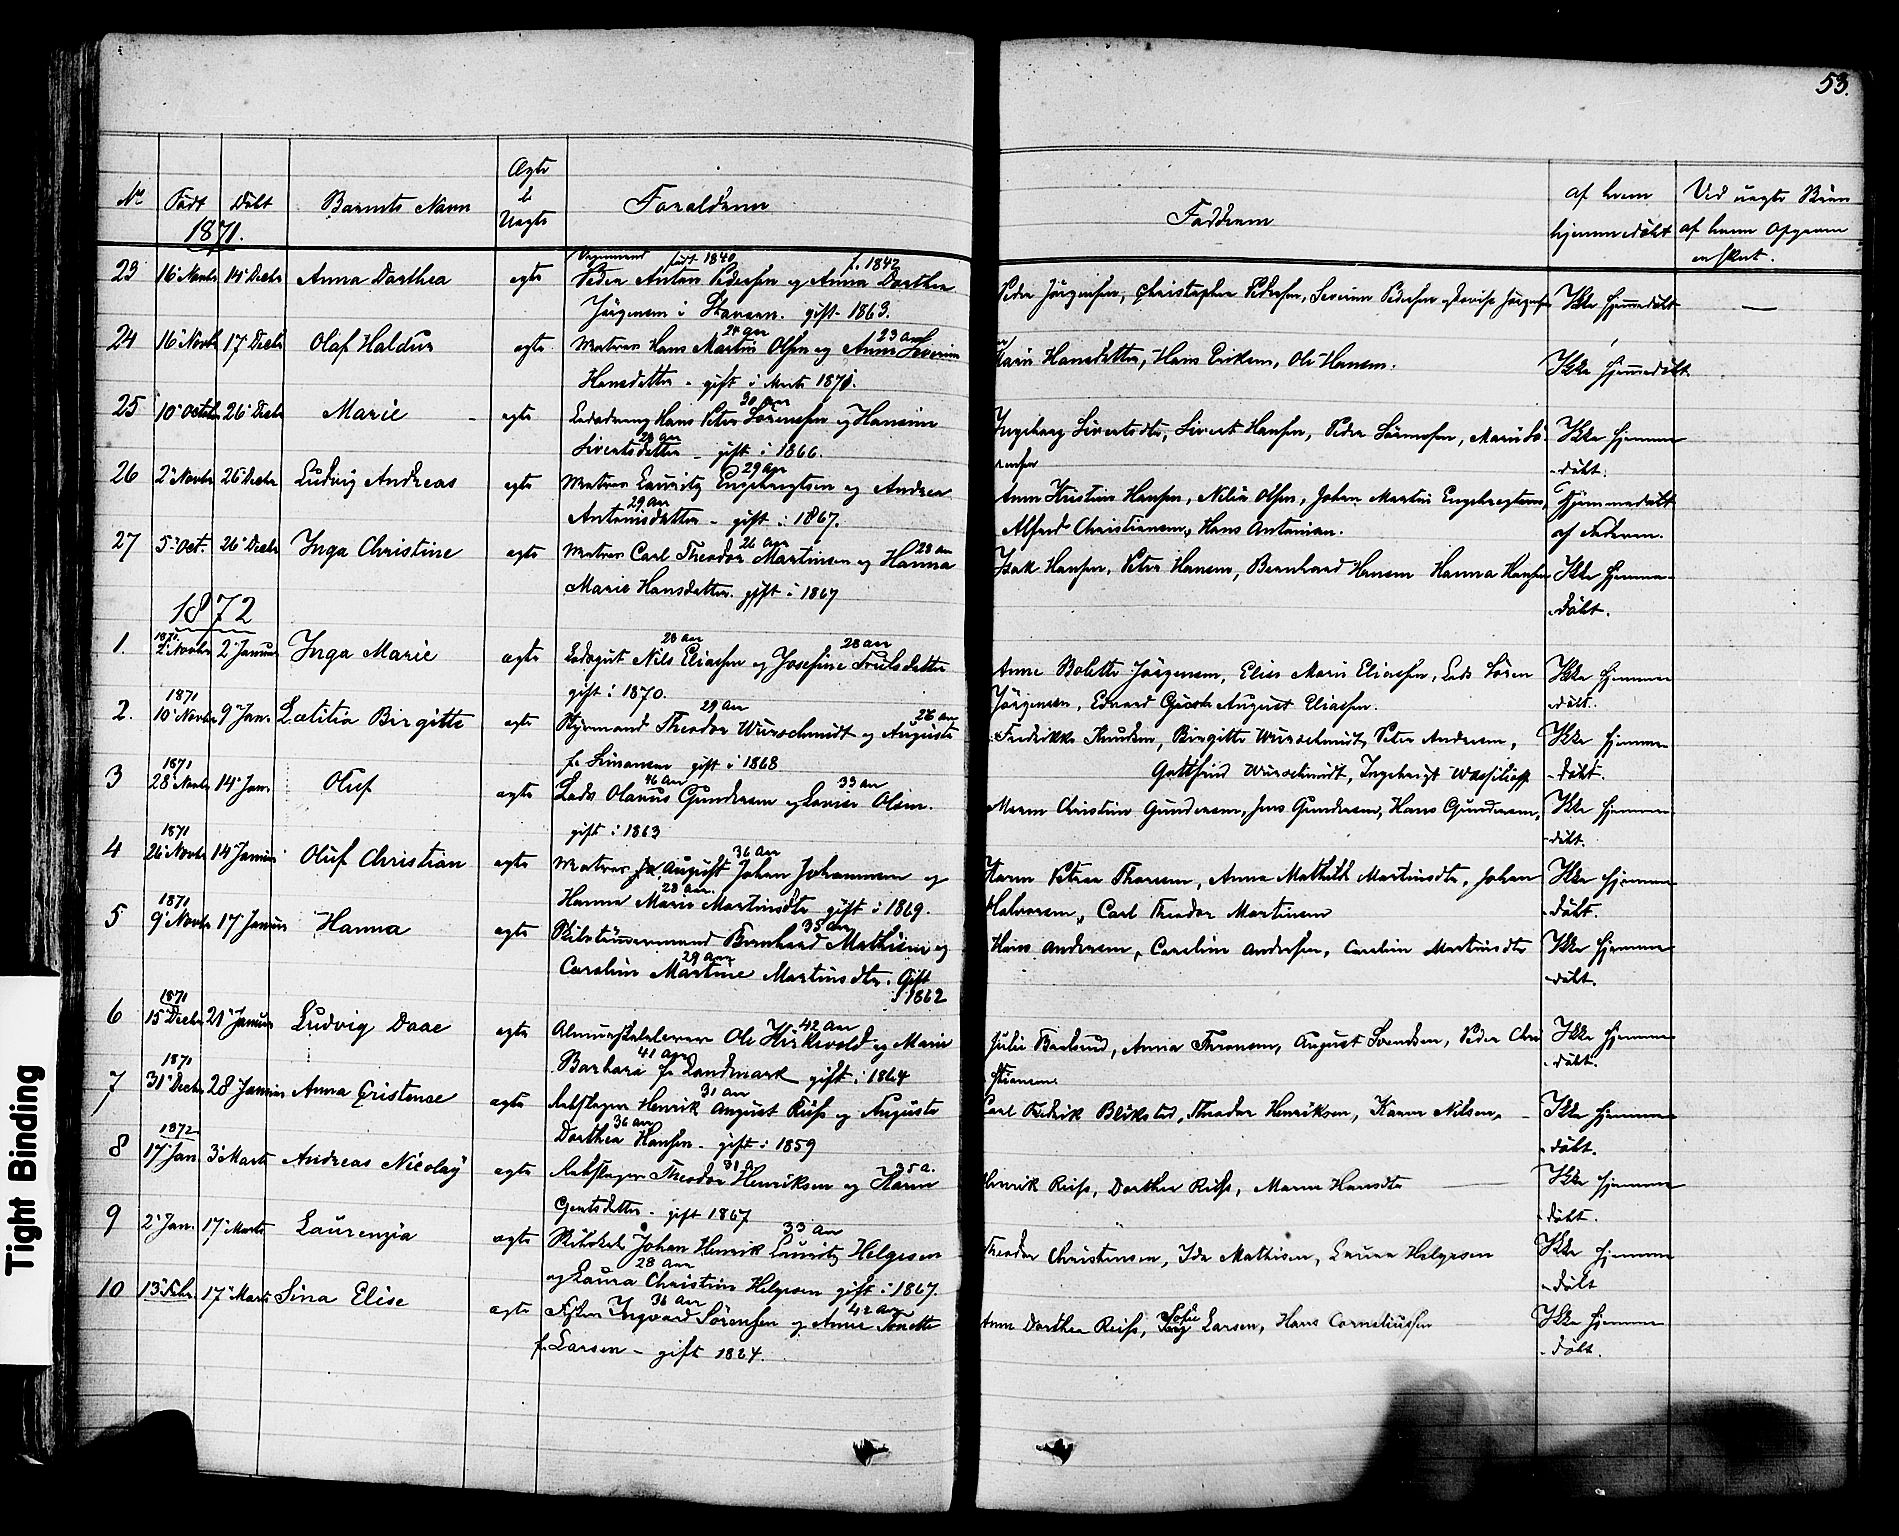 53.
No Født Døbt Barnets Navn Ægte & Uægte Forældrene Faddrene af hvem hjemmedøbt Ved uægte Børn af hvem Opgaven er skeet.
1871.
23 16 Novbr 14 Decbr Anna Dorthea ægte Peder Anton Pedersen og Anna Dorthea Peder Jörgensen, Christopher Pedersen, Severine Pedersen Ikke hjemmedøbt —
født 1840 f. 1842
Jörgensen i Stavern. gift 1863.
24 16 Novbr 17 Decbr Olaf Haldur ægte Matros Hans Martin Olsen og Anne Severine Karen Hansdatter, Hans Eriksen, Ole Hansen. Ikke hjemmedøbt
24 aar 23 aar
Hansdatter – gift i Marts 1871.
25 10 Octobr 26 Decbr Marie ægte Hans Peter Sörensen og Hansine Ingeborg Sivertsdtr, Sivert Hansen, Peder Sörensen, Maren Sö- Ikke hjemme
30 aar
Sivertsdatter – gift i 1866. rensen -døbt.
28 aar
26 2 Novbr 26 Decbr Ludvig Andreas ægte Matros Lauritz Engebregtsen og Andrea Ann Kristine Hansen, Nilia Olsen, Johan Martin Engebregtsen, Hjemmedøbt
29 Aar
Antonisdatter – gift i 1867. Alfred Christiansen, Hans Antonisen. af Faderen.
29 Aar
27 5 Oct. 26 Decbr Inga Christine ægte Matros Carl Theodor Martinsen og Hanna Isak Hansen, Peter Hansen, Bernhard Hansen Hanna Hansen Ikke hjemme-
26 Aar 28 aar
Marie Hansdatter. gift i 1867 -døbt.
1872
1. 1871 2 Novbr 2 Januar Inga Marie ægte Nils Eliassen og Josefine Anne Bolette Jörgensen, Elise Marie Eliassen, Lods Sören Ikke hjemme
28 aar 28 aar
gift i 1870. Jörgensen, Edvard August Eliassen. døbt.
2. 1871 10 Novbr 9 Jan. Lætitia Birgitte ægte Styrmand Theodor Wurschmidt og Augusta Fredrikke Knudsen, Birgitte Wurschmidt, Peter Andersen, Ikke hjemme
29 Aar 26 aar
f. Simonsen gift i 1868 Gottfried Wurschmidt, Ingebrigt -døbt.
3 1871 28 Novbr 14 Jan. Oluf ægte Lods Olaves Gundersen og Lovise Olsen. Maren Christine Gundersen, Jens Gundersen, Hans Gundersen, Ikke hjemme
46 Aar 33 aar
gift i 1863 -døbt.
4 1871 26 Novbr 14 Januar Oluf Christian ægte Matros August Johan Johannesen og Karen Petrea Thoresen, Anna Mathilde Martinsdtr, Johan Ikke hjemme
36 Aar
Hanna Marie Martinsdtr gift i 1869. Halvorsen, Carl Theodor Martinsen -døbt.
28 aar.
5 1871 9 Novbr 17 Januar Hanna ægte Skibstömmermand Bernhard Mathisen og Hans Andersen, Caroline Andersen, Caroline Martinsdtr Ikke hjemme
35 aar
Caroline Martine Martinsdtr. Gift -døbt.
29 aar.
i 1862
6 1871 15 Decbr 21 Januar Ludvig Daae ægte Almueskolelærer Ole Hirkvold og Marie Julie Baalsrud, Anna Thronsen, August Svendsen, Peder Chri Ikke hjemme
42 Aar
Barbara f. Landmark gift i 1864 stiansen -døbt.
41 aar
7 1871 31 Decbr 28 Januar Anna Cristense ægte Rebslager Henrik August Ruis og Augusta Carl Fredrik Blikstad, Theodor Henriksen, Karen Nilsen, Ikke hjemme
31 aar
Dorthea Hansen – gift i 1859 -døbt.
36 aar
8 1872 17 Jan. 3 Marts Andreas Nicolay ægte Rebslager Theodor Henriksen og Karen Henrik Ruis, Dorthea Ruis, Maren Hansdtr Ikke hjemme
31 a 35 a.
Gjertsdatter. gift 1867 -døbt.
9 2 Jan. 17 Marts Laurenzia ægte Johan Henrik Lauritz Helgesen Theodor Christensen, Ida Mathisen, Laura Helgesen Ikke hjemme
33 aar
og Laura Christine Helgesen gift i 1867. -døbt
28 aar
10 13 Febr. 17 Marts Sina Elise ægte Fisker Ingvard Sörensen og Anne Tonette Ann Dorthea Reiss, Sofie Larsen, Hans Corneliussen Ikke hjemme
36 aar 42 aar
f. Larsen – gift 1864. -døbt.
Tight Binding